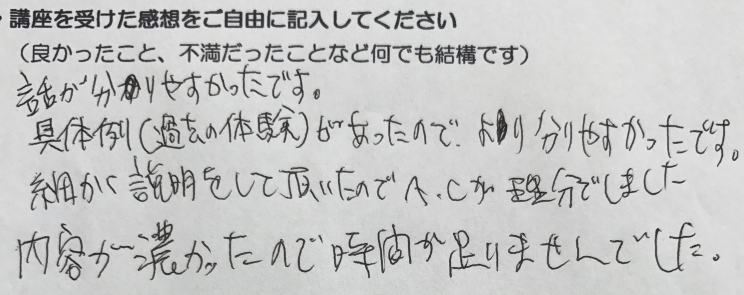 ・講座を受けた感想をご自由に記入してください
（良かったこと、不満だったことなど何でも結構です）
話が分かりやすかったです。
具体例(過去の体験)があったので、より分りやすかったです。
細かく説明をして頂いたのでA.Cが理分でしました
内容が濃かったので時間が足りませんでした。